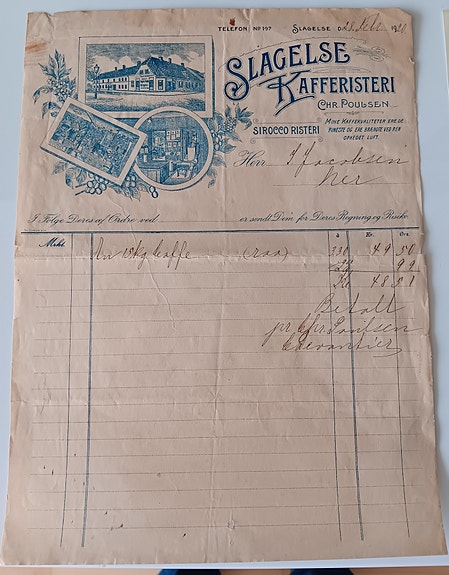 TELEFON Nº 197 SLAGELSE D. 28 Febr. 1920
SLAGELSE
KAFFERISTERI
CHR. POULSEN
SIROCCO RISTERI
MINE KAFFEKVALITETER ERE DE
FINESTE OG ERE BRÆNDTE VED REN
OPHEDET LUFT.
Herr J Jacobsen
her
I Følge Deres af Ordre ved er sendt Dem for Deres Regning og Risiko.
Mrkt. a Kr. Øre.
15 kg kaffe (raa) 330 49 50
2% 99
Kr 48 51
Betalt
pr. Chr.